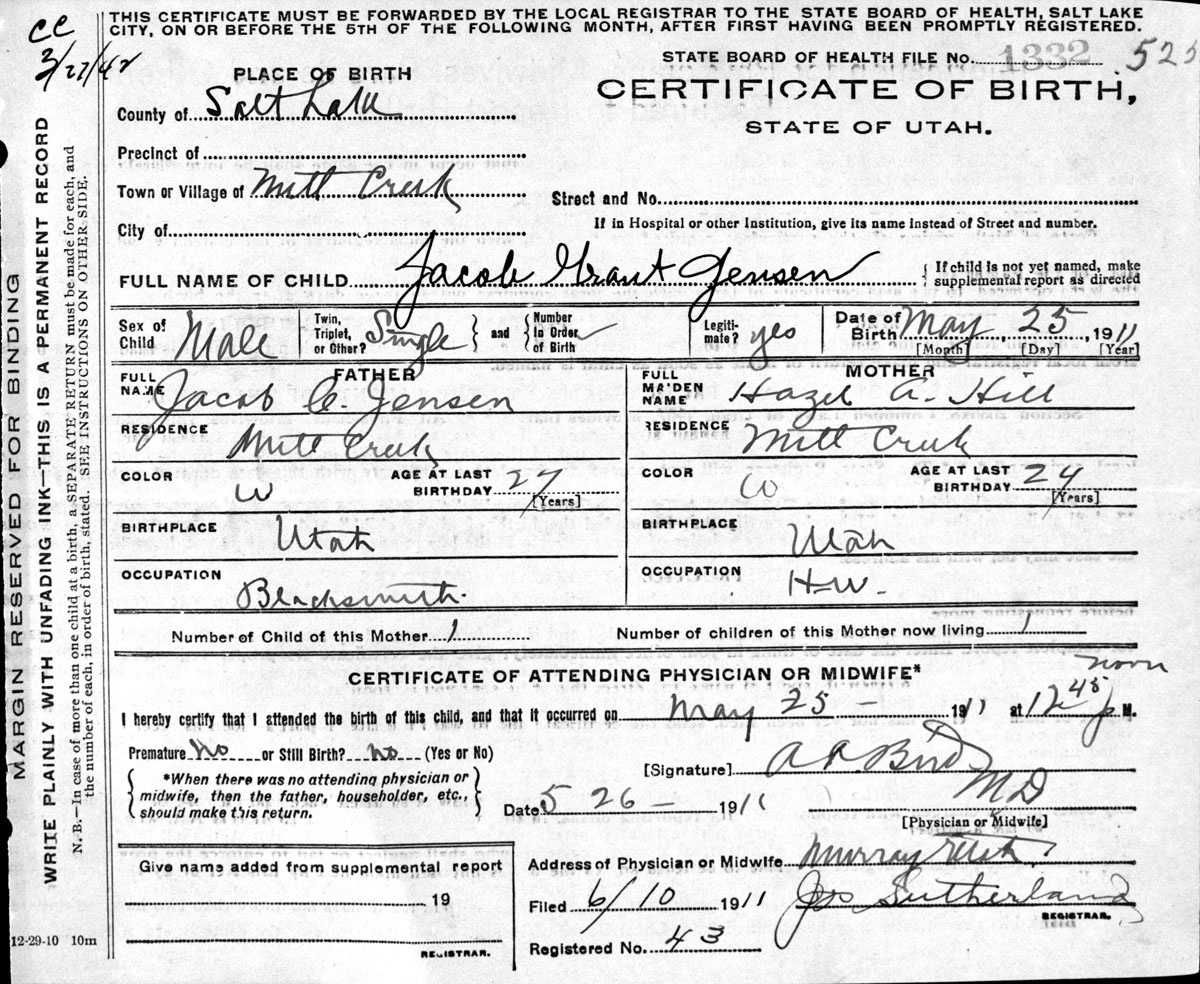 THIS CERTIFICATE MUST BE FORWARDED BY THE LOCAL REGISTRAR TO THE STATE BOARD OF HEALTH, SALT LAKE
CITY, ON OR BEFORE THE 5TH OF THE FOLLOWING MONTH, AFTER FIRST HAVING BEEN PROMPTLY REGISTERED.
CC
3/27/42
STATE BOARD OF HEALTH FILE NO. 1332 523
PLACE OF BIRTH
CERTIFICATE OF BIRTH,
STATE OF UTAH.
County of Salt Lake
Precinct of
Town or Village of Mill Creek
Street and No.
City of
If in Hospital or other Institution, give its name instead of Street and number.
FULL NAME OF CHILD Jacob Grant Jensen { If child is not yet named, make supplemental report as directed
Sex of Child Male Twin, Triplet, or Other? Single } and { Number In Order of Birth Legiti-mate? yes Date of Birth May 25, 1911
[Month] [Day] [Year]
FATHER
FULL NAME Jacob C. Jensen
RESIDENCE Mill Creek
COLOR W AGE AT LAST BIRTHDAY 27 [Years]
BIRTHPLACE Utah
OCCUPATION Blacksmith.
MOTHER
FULL MAIDEN NAME Hazel A. Hill
RESIDENCE Mill Creek
COLOR W AGE AT LAST BIRTHDAY 24 [Years]
BIRTHPLACE Utah
OCCUPATION H-W-
Number of Child of this Mother 1 Number of children of this Mother now living 1
CERTIFICATE OF ATTENDING PHYSICIAN OR MIDWIFE*
noon
I hereby certify that I attended the birth of this child, and that it occurred on May 25 - 1911 at 12 45 p M.
Premature No or Still Birth? No (Yes or No)
{ *When there was no attending physician or midwife, then the father, householder, etc., should make this return. }
[Signature] A. A. Bird
MD
Date 5 26 - 1911
[Physician or Midwife]
Give name added from supplemental report
19
REGISTRAR.
Address of Physician or Midwife Murray Utah
Filed 6/10 1911 Jos Sutherland
REGISTRAR.
Registered No. 43
12-29-10 10m
MARGIN RESERVED FOR BINDING
WRITE PLAINLY WITH UNFADING INK—THIS IS A PERMANENT RECORD
N. B.—In case of more than one child at a birth, a SEPARATE RETURN must be made for each, and
the number of each, in order of birth, stated. SEE INSTRUCTIONS ON OTHER SIDE.